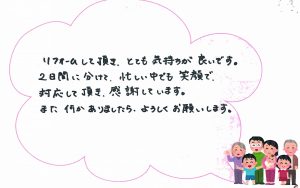 リフォームして頂き、とても気持ちが良いです。
2日間に分けて、忙しい中でも笑顔で、
対応して頂き、感謝しています。
また何かありましたら、よろしくお願いします。